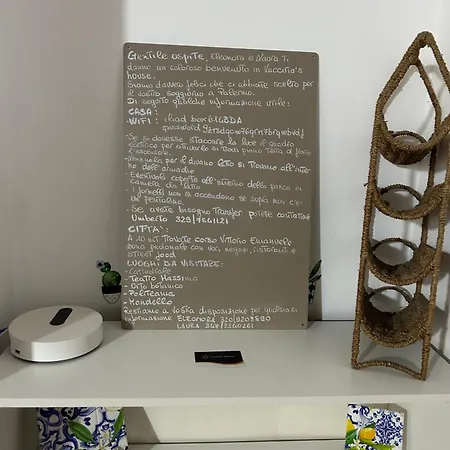 Gentile ospite, Eleonora e Laura ti
danno un caloroso benvenuto in Vucciria's
house.
Siamo davvero felici che ci abbiate scelto per
il vostro soggiorno a Palermo.
Di seguito qualche informazione utile!
CASA:
WIFI: iliad box
password
- Se si dovesse staccare la luce il quadro
elettrico per attivarlo si trova piano terra di fianco
l'ascensore.
- per il divano letto si trovano all'inter
no dell'armadio
- Eventuali coperte all'interno della panca in
camera da letto
- I fornelli non si accendono se sopra non c'è
un pentolino
- Se avete bisogno Transfer potete contattare
Umberto 329/7561121
CITTÀ:
A 10 mt trovate corso Vittorio Emanuele
zona pedonale con bar, negozi, ristoranti e
street food
LUOGHI DA VISITARE:
- Cattedrale
- Teatro Massimo
- Orto botanico
- Politeama
- Mondello
Restiamo a vostra disposizione per qualsiasi
informazione ELEONORA
LAURA